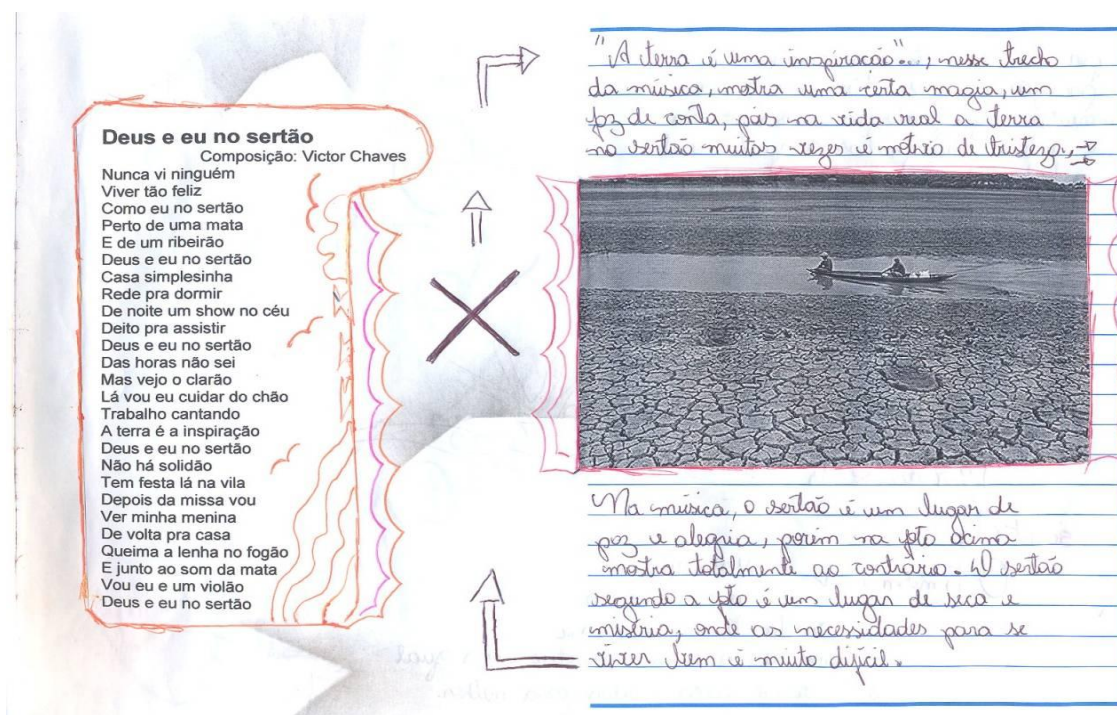 Deus e eu no sertão
Composição: Victor Chaves
Nunca vi ninguém
Viver tão feliz
Como eu no sertão
Perto de uma mata
E de um ribeirão
Deus e eu no sertão
Casa simplesinha
Rede pra dormir
De noite um show no céu
Deito pra assistir
Deus e eu no sertão
Das horas não sei
Mas vejo o clarão
Lá vou eu cuidar do chão
Trabalho cantando
A terra é a inspiração
Deus e eu no sertão
Não há solidão
Tem festa lá na vila
Depois da missa vou
Ver minha menina
De volta pra casa
Queima a lenha no fogão
E junto ao som da mata
Vou eu e um violão
Deus e eu no sertão
"A terra é uma inspiração"..., nesse trecho
da música, mostra uma certa magia, um
fz de conta, pois na vida real a terra
no sertão muitas vezes é motivo de tristeza,
Na música, o sertão é um lugar de
paz e alegria, porém na fto acima
mostra totalmente ao contrário. O sertão
segundo a fto é um lugar de seca e
miséria, onde as necessidades para se
viver bem é muito difícil.